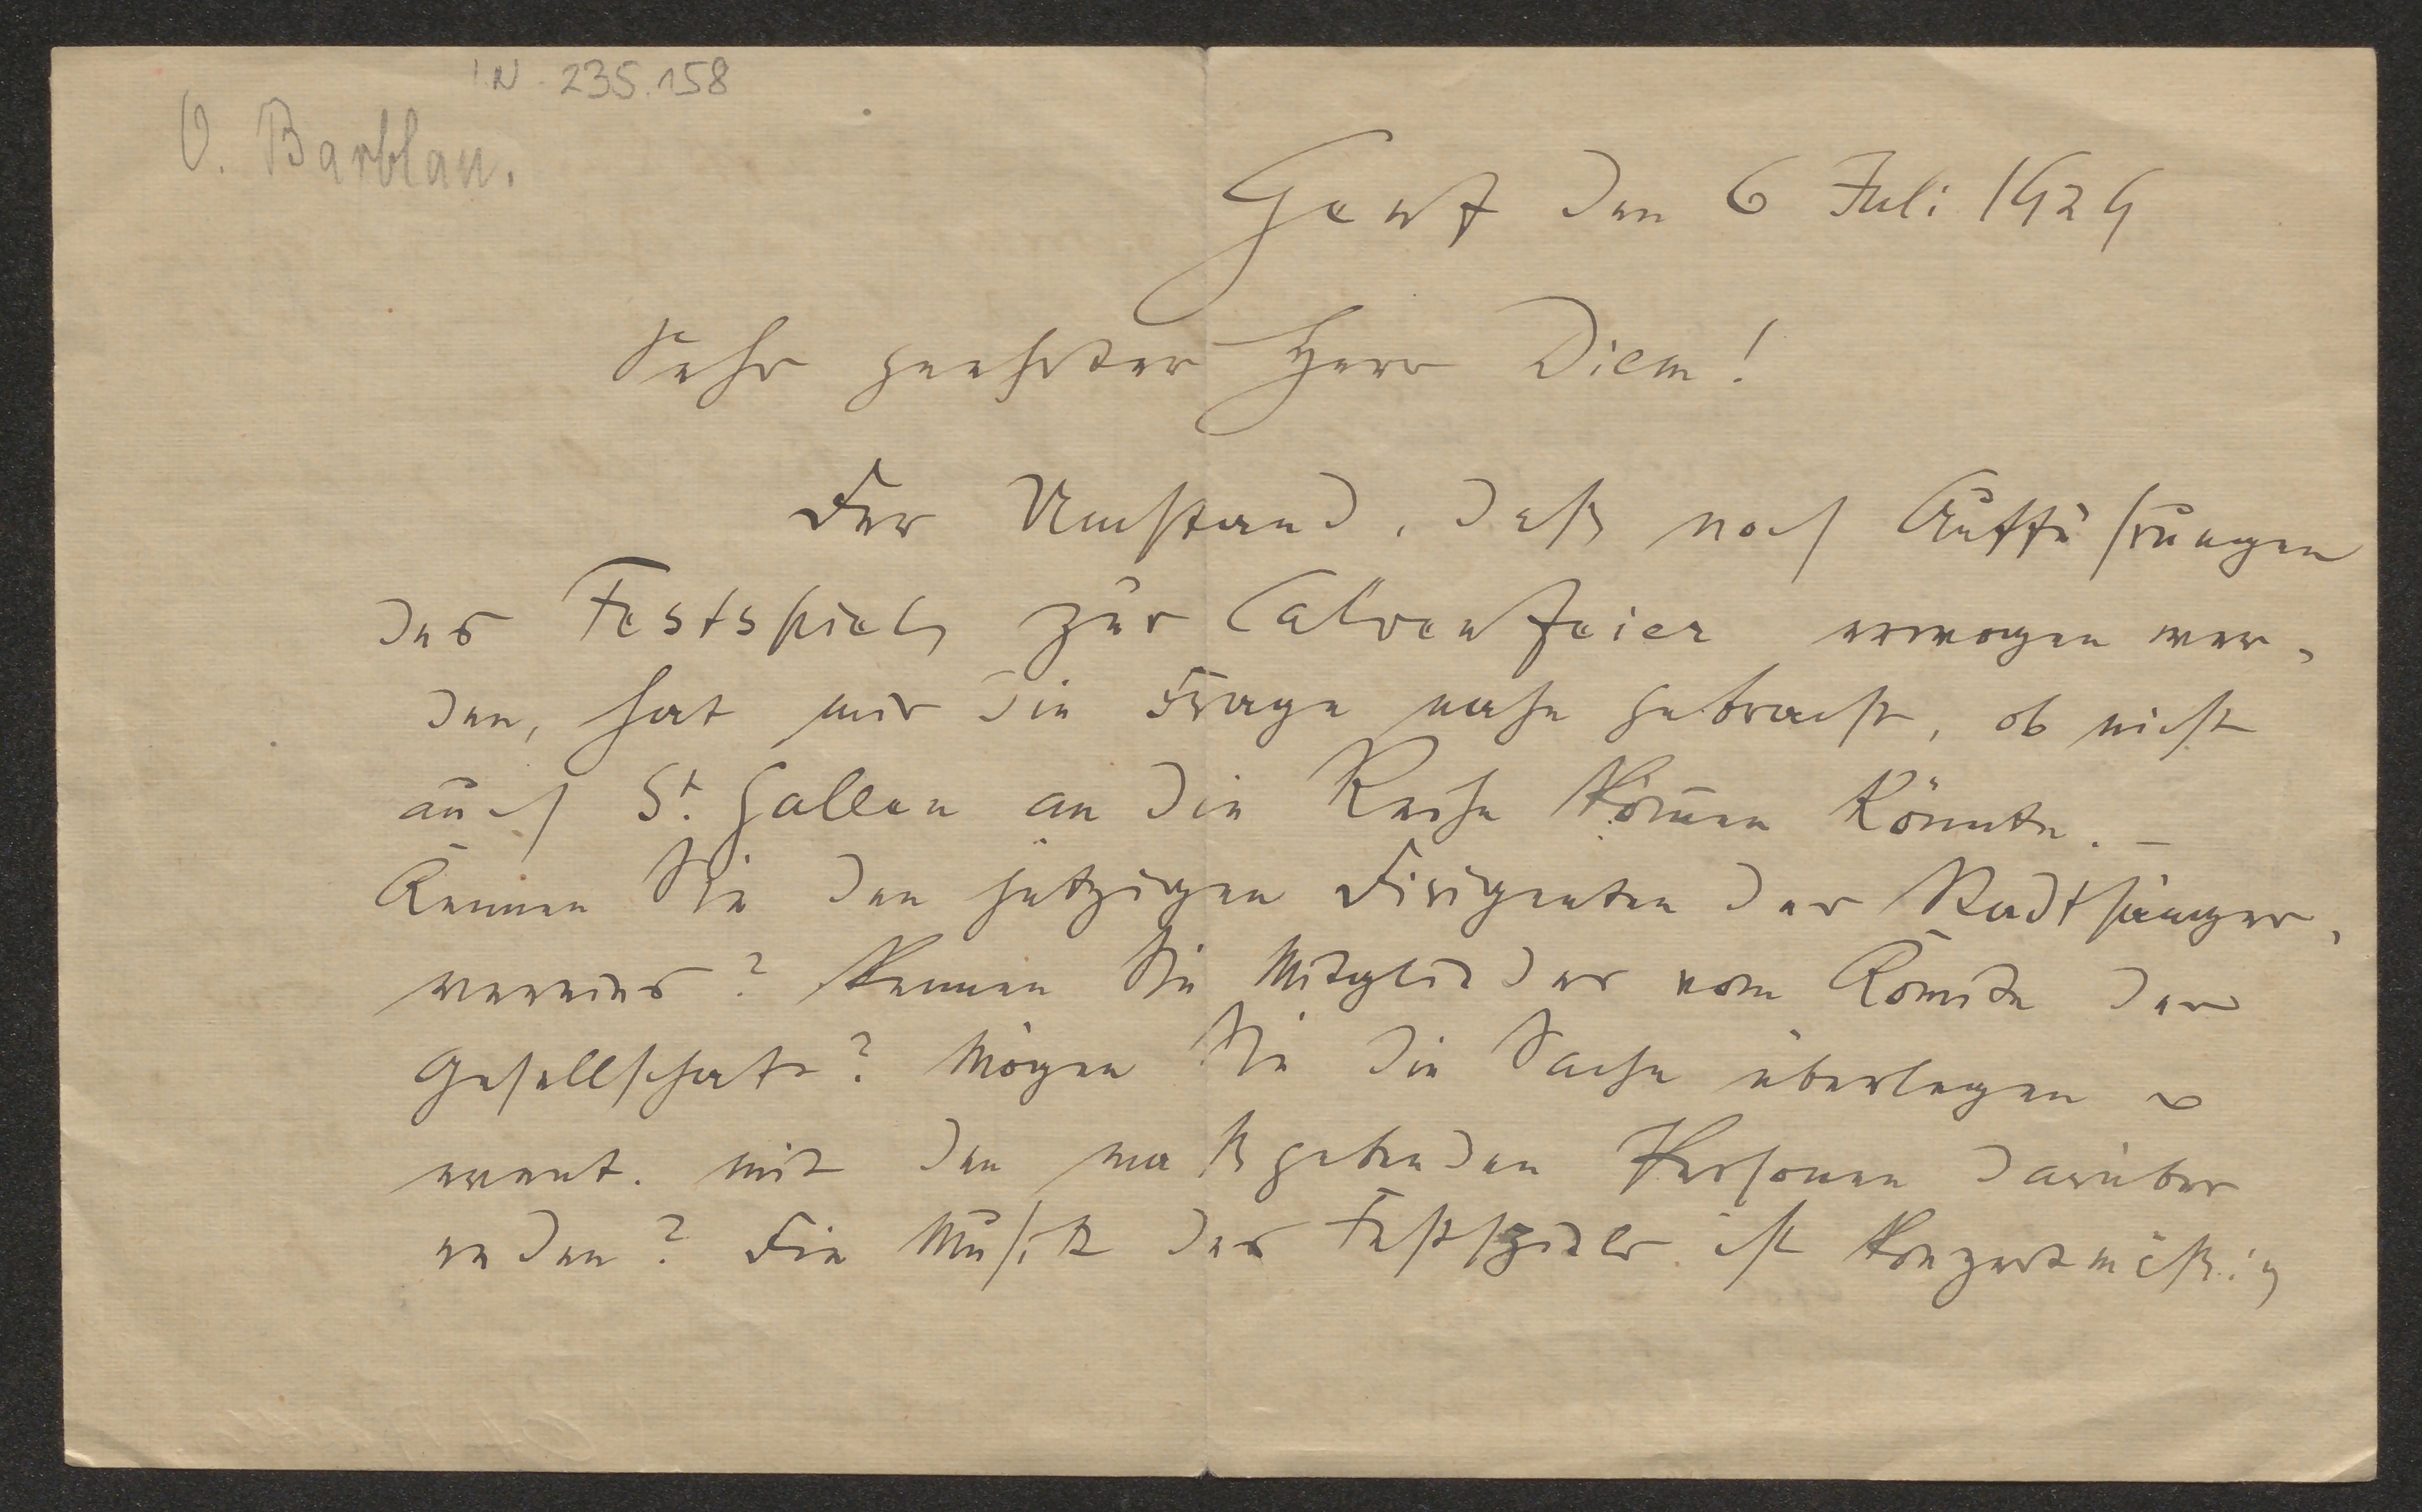 IN. 235.158
O. Barblan.
Genf den 6 Juli 1929
Sehr geehrter Herr Diem!
Der Umstand, daß noch Aufführungen
des Festspiels zur Calvenfeier erwogen wer-
den, hat mir die Frage nahe gebracht, ob nicht
auch St. Gallen an die Reihe kom̄en könnte. –
Kennen Sie den jetzigen Dirigenten des Stadtsänger-
vereins? Kennen Sie Mitglieder vom Komite der
Gesellschaft? Mögen Sie die Sache überlegen &
event. mit den maßgebenden Personen darüber
reden? Die Musik des Festspiels ist konzertmäßig